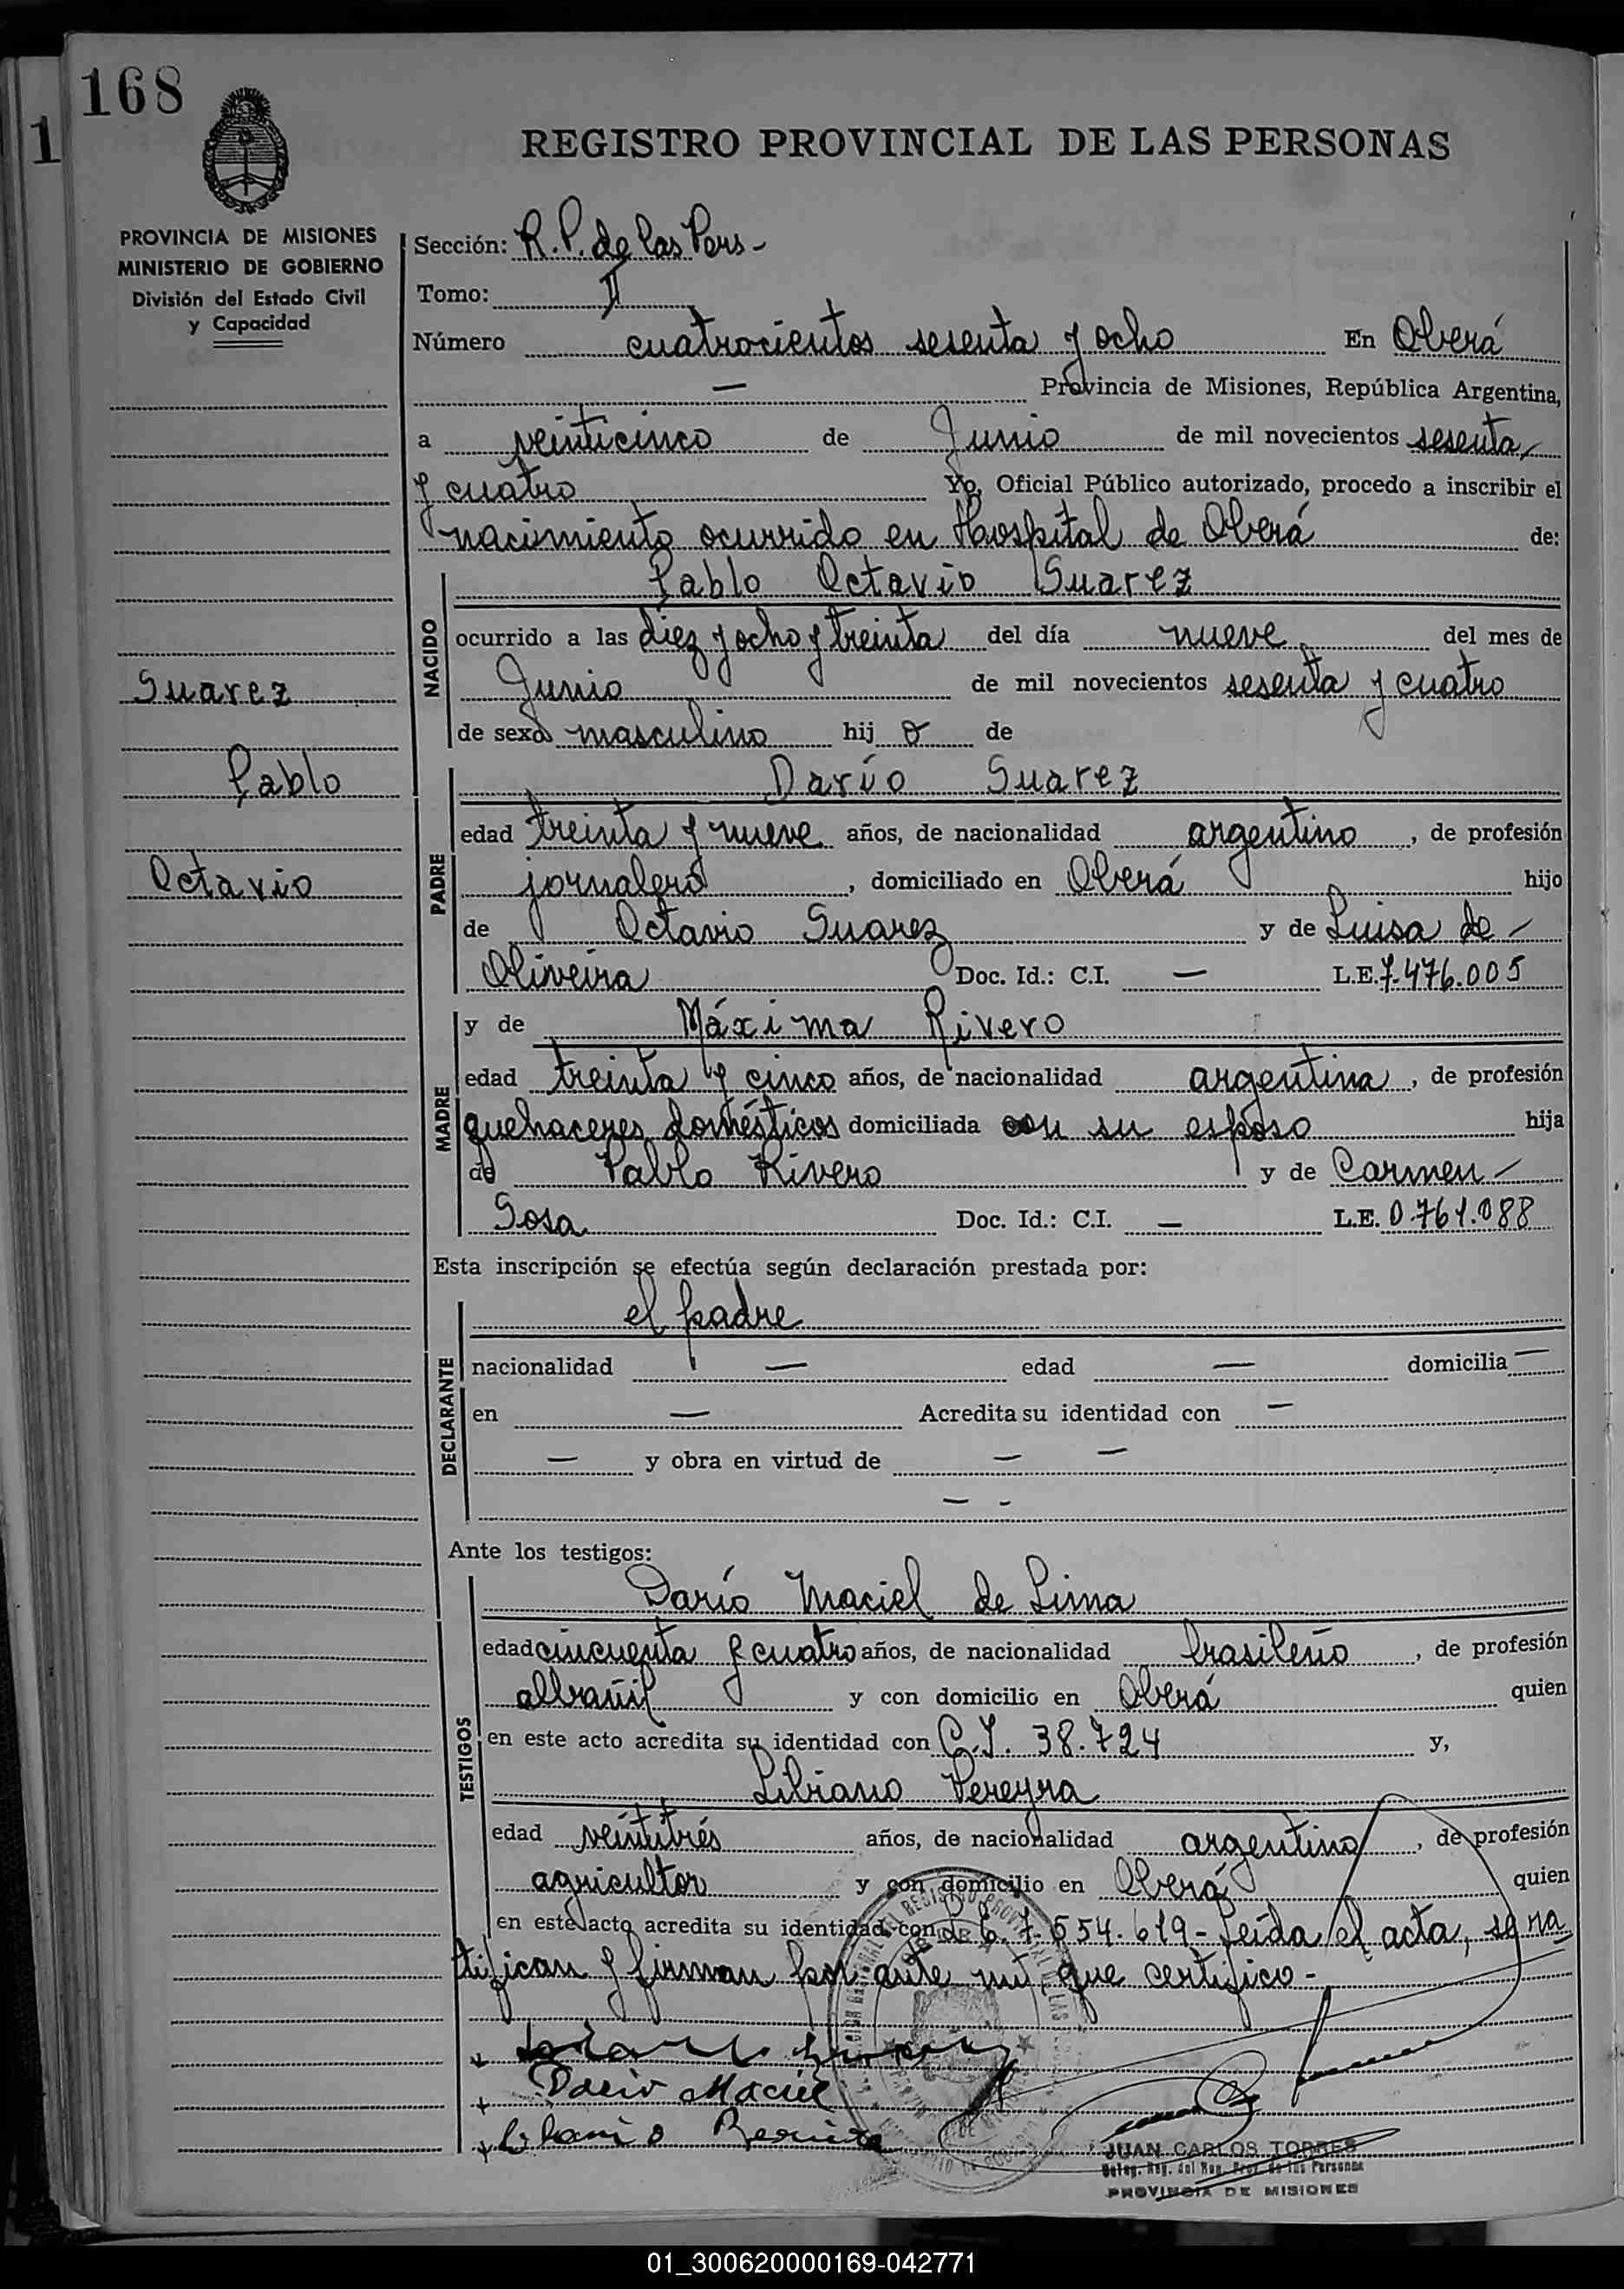 168
1
REGISTRO PROVINCIAL DE LAS PERSONAS
PROVINCIA DE MISIONES
MINISTERIO DE GOBIERNO
División del Estado Civil
y Capacidad
Sección: R.P. de las Pers-
Tomo: II
Número cuatrocientos sesenta y ocho En Oberá
— Provincia de Misiones, República Argentina,
a veinticinco de Junio de mil novecientos sesenta
y cuatro Yo, Oficial Público autorizado, procedo a inscribir el
nacimiento ocurrido en Hospital de Oberá de:
NACIDO
Pablo Octavio Suarez
ocurrido a las diez y ocho y treinta del día nueve del mes de
Junio de mil novecientos sesenta y cuatro
de sexo masculino hij o de
Suarez
Pablo
Octavio
PADRE
Darío Suarez
edad treinta y nueve años, de nacionalidad argentino, de profesión
jornalero, domiciliado en Oberá hijo
de Octavio Suarez y de Luisa de -
Oliveira Doc. Id.: C.I. — L.E. 7.476.005
MADRE
y de Máxima Rivero
edad treinta y cinco años, de nacionalidad argentina, de profesión
quehaceres domésticos domiciliada con su esposo hija
de Pablo Rivero y de Carmen -
Sosa Doc. Id.: C.I. — L.E. 0.761.088
Esta inscripción se efectúa según declaración prestada por:
DECLARANTE
el padre
nacionalidad — edad — domicilia —
en — Acredita su identidad con —
— y obra en virtud de — —
— -
Ante los testigos:
TESTIGOS
Darío Maciel de Lima
edad cincuenta y cuatro años, de nacionalidad brasileño, de profesión
albañil y con domicilio en Oberá quien
en este acto acredita su identidad con C.I. 38.724 y,
Libiano Pereyra
edad veintitrés años, de nacionalidad argentino, de profesión
agricultor y con domicilio en Oberá quien
en este acto acredita su identidad con 7.554.619- Leída el acta, se ra
tifican y firman por ante mí que certifico-
Darío Maciel
JUAN CARLOS TORRES
Deleg. Reg. del Reg. Prov. de las Personas
PROVINCIA DE MISIONES
01_300620000169-042771